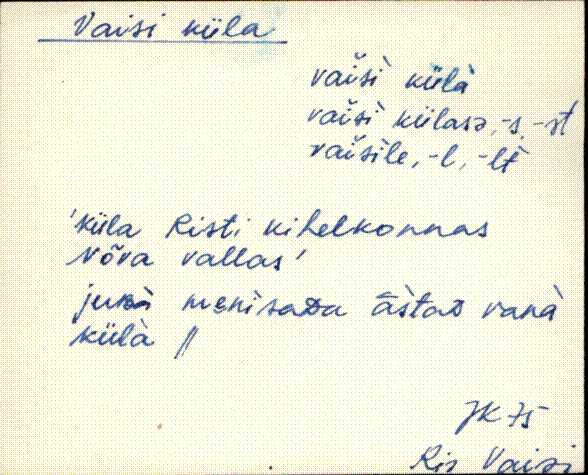 Vaisi küla
vaiš̀ì külà
vaiš̀ì külasə, -s, -st
vaiš̀ìle, -l, -lt
'küla Risti kihelkonnas
Nõva vallas'
menìsaᴅa āstaᴅ vanà
külà //
JK 75
Ris Vaisi